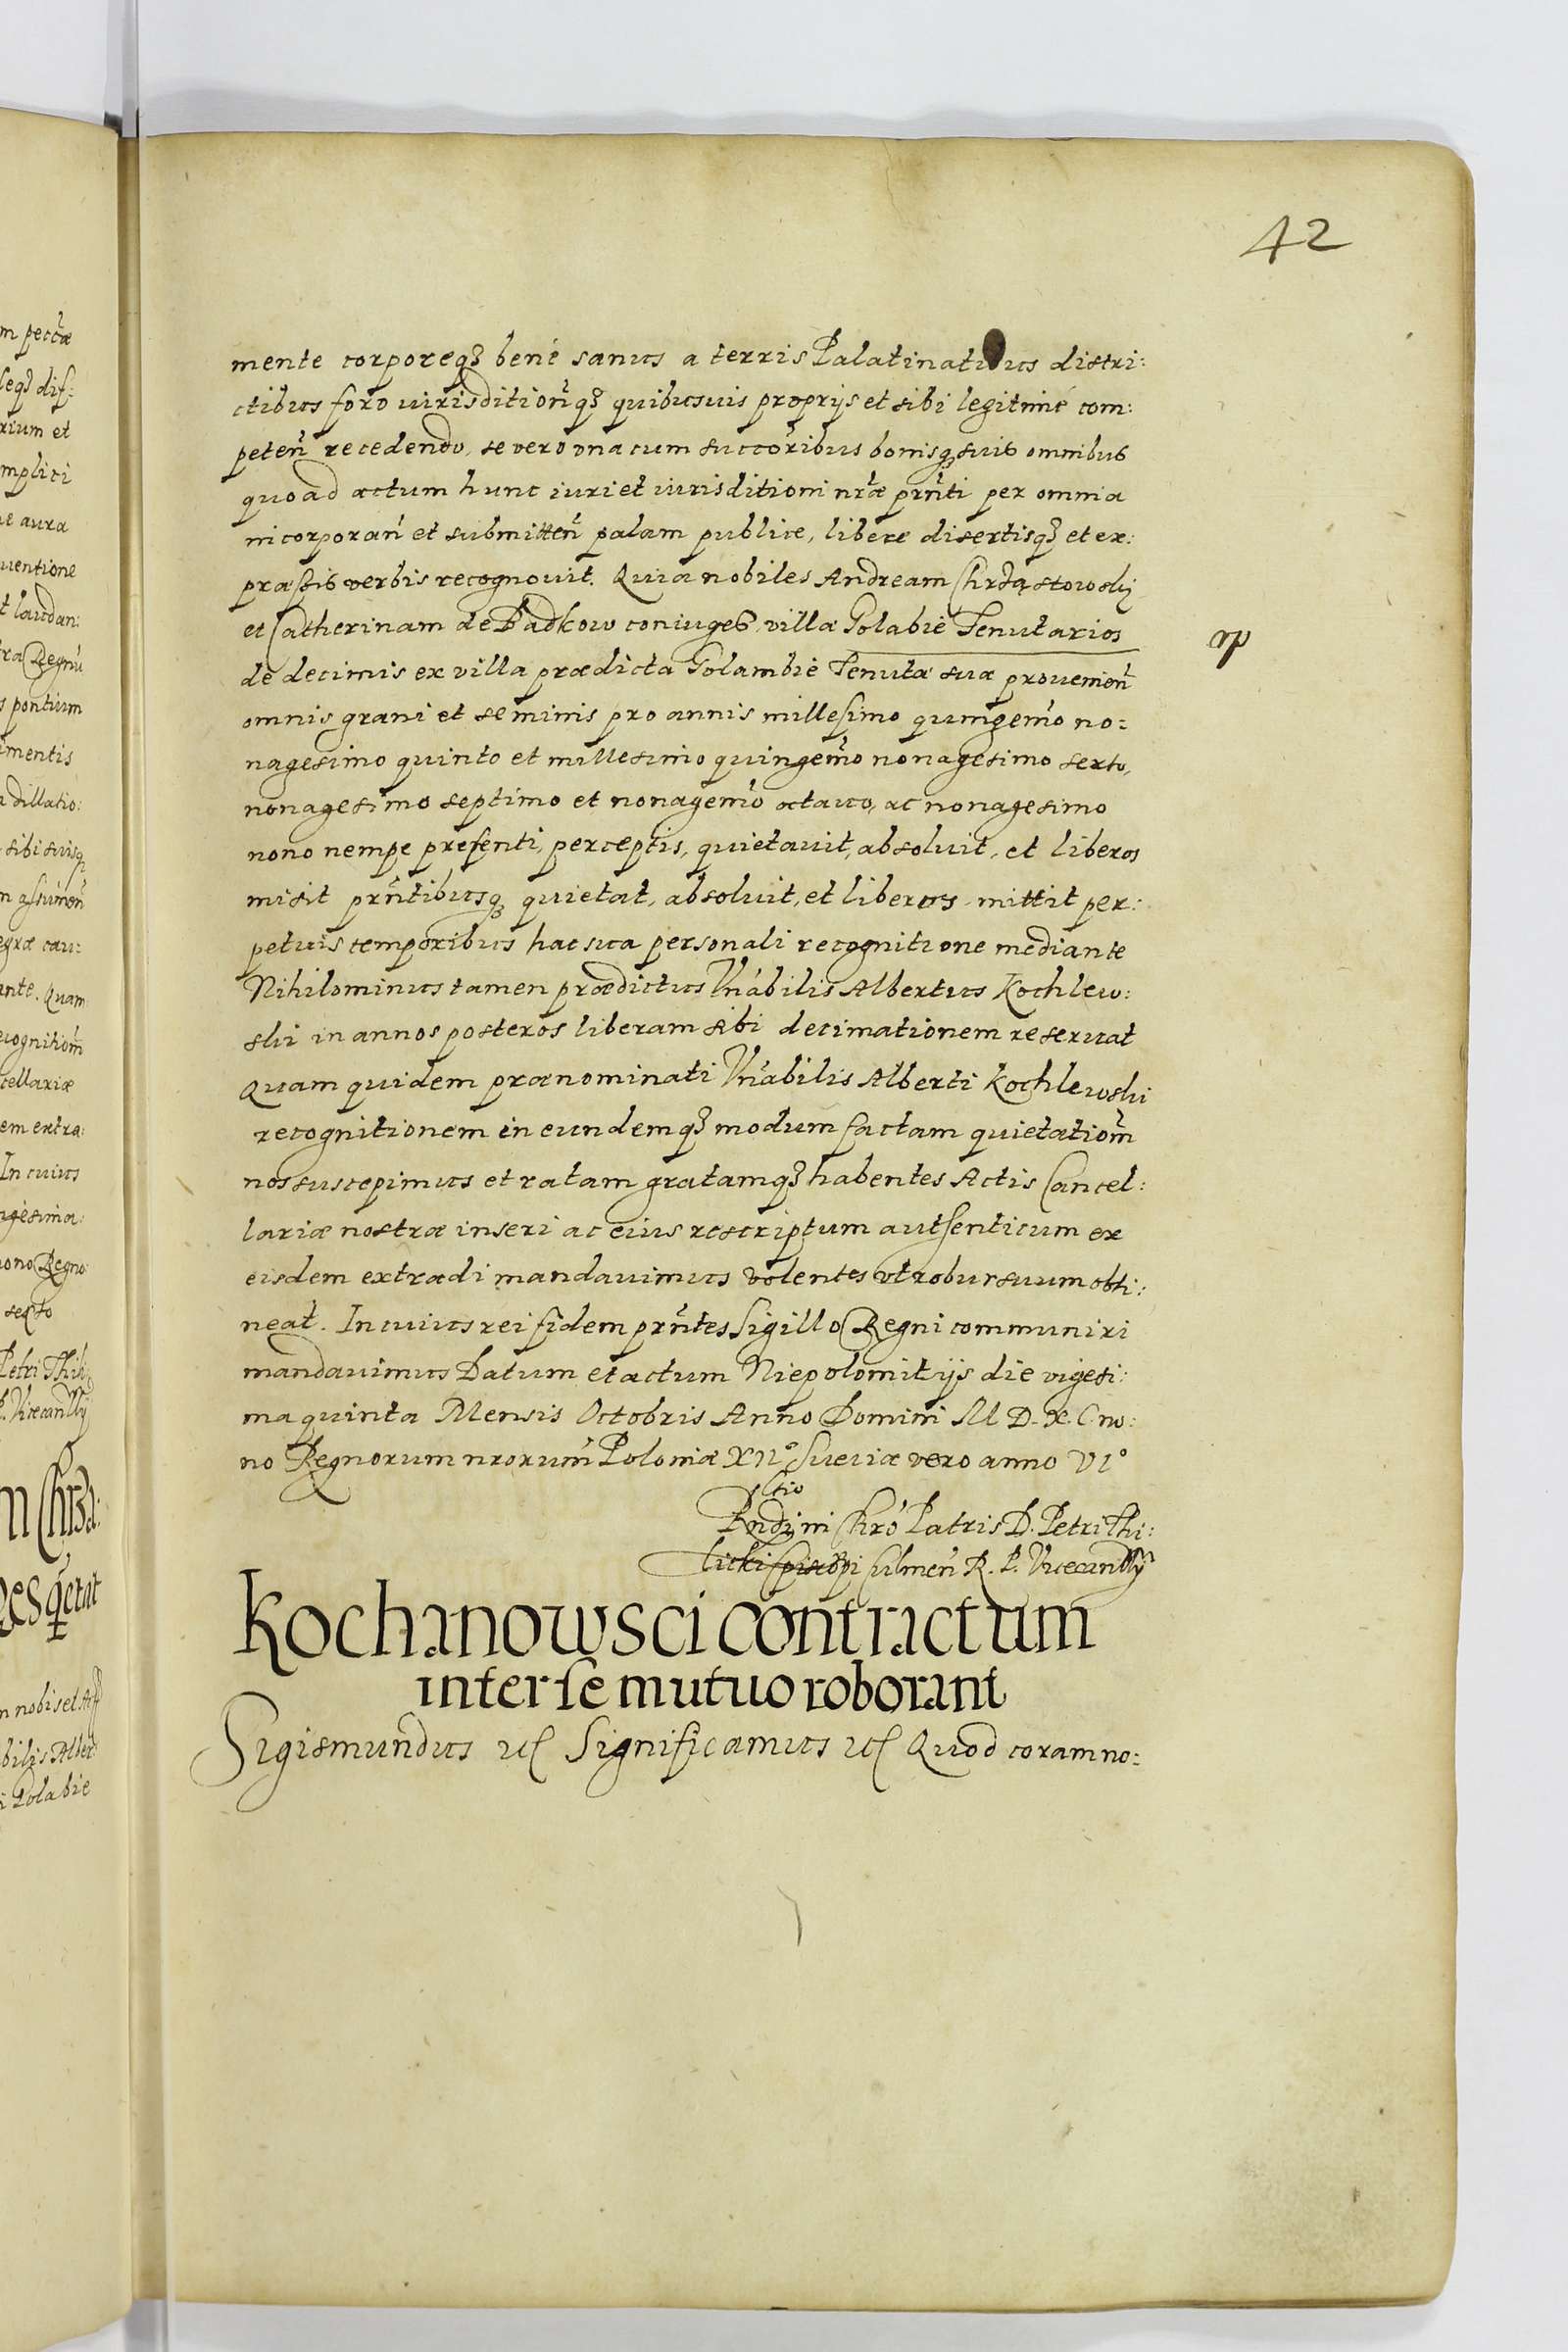 42
mente corporeq3 bené sanus a terris Palatinatibus distri:
ctibus foro iurisditioñq3 quibusuis proprijs et sibi legitimé com:
peteñ recedendo, se vero vna cum succoribus bonisq3 suis omnibus
quo ad actum hunc iuri et iurisditioni nr̃æ prñti per omnia
incorporañ et submitteñ palam publice, libere disertisq3 et ex:
præssis verbis recognouit. Quia nobiles Andream Chrząstowsky
et Catherinam de Badkow coniuges villæ Golabie Tenutarios
de decimis ex villa prædicta Golambie Tenutæ suæ prouenieñ
omnis grani et seminis pro annis millesimo quingemo no:
nagesimo quinto et millesimo quingemo nonagesimo sexto,
nonagesimo septimo et nonagemo octauo, ac nonagesimo
nono nempe presenti, perceptis, quietauit, absoluit, et liberos
misit prñtibusq3 quietat, absoluit, et liberos mittit per:
petuis temporibus hac sua personali recognitione mediante
Nihilominus tamen prædictus Vñabilis Albertus Kochlew:
ski in annos posteros liberam sibi decimationem reseruat
Quam quidem prænominati Vñabilis Alberti Kochlewski
recognitionem in eundemq3 modum factam quietatiom̃
nos suscepimus et ratam gratamq3 habentes Actis Cancel:
lariæ nostræ inseri ac eius rescriptum autsenticum ex
eisdem extradi mandauimus volentes vt robur suum obti:
neat. In cuius rei fidem prñtes Sigillo Regni communiri
mandauimus Datum et actum Niepolomitijs die vigesi:
ma quinta Mensis Octobris Anno Domini M D. X. C no:
no Regnorum nrorum̃ Poloniæ XII° Sueciæ vero anno VI°
Rndzmi Chro Patris D. Petri Thi:
licki Episcopi Culmeñ R. P. Vicecancllrij
Kochanowsci contractum
inter se mutuo roborant
Sigismundus etc Significamus etc Quod coram no: